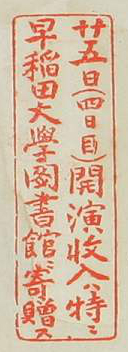 廿五日(四日目)開演收入ハ特ニ
早稲田大學圖書館ヘ寄贈ス